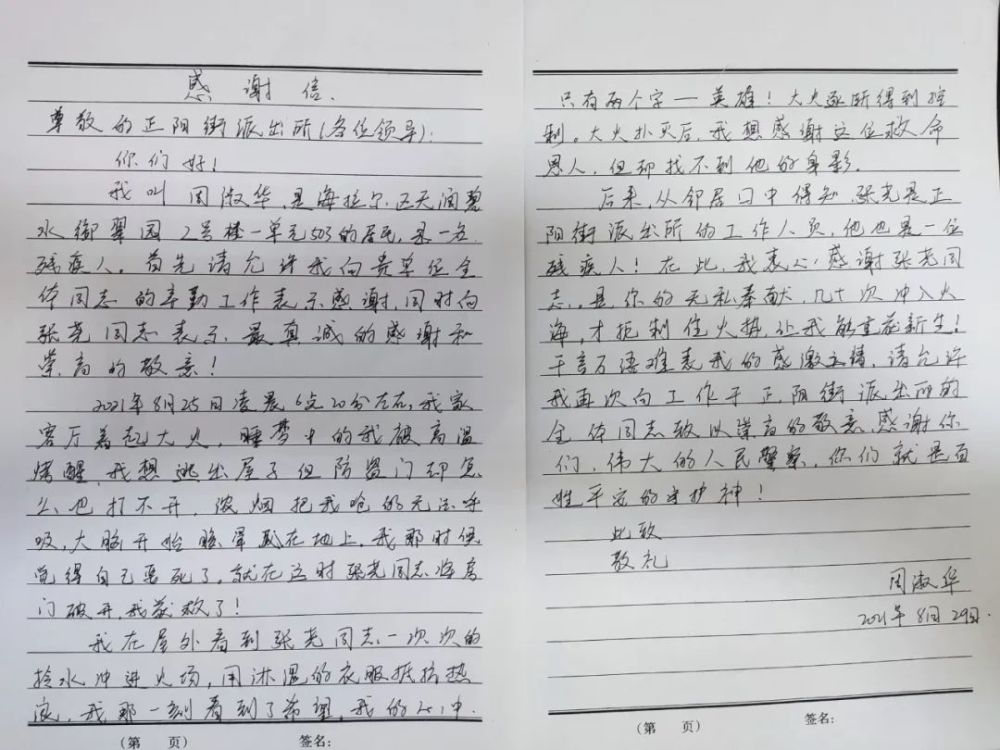 感谢信.
尊敬的正阳街派出所(各位领导):
你们好!
我叫周淑华,是海拉尔区天润碧
水御翠园2号楼一单元503的居民,是一名
残疾人。首先请允许我向贵单位全
体同志的辛勤工作表示感谢,同时向
张尧同志表示最真诚的感谢和
崇高的敬意!
2021年8月25日凌晨6点20分左右,我家
客厅着起大火,睡梦中的我被高温
烤醒,我想逃出屋子但防盗门却怎
么也打不开,浓烟把我呛的无法呼
吸,大脑开始眩晕趴在地上,我那时候
觉得自己要死了,就在这时张尧同志将房
门破开,我获救了!
我在屋外看到张尧同志一次次的
拎水冲进火场,用淋湿的衣服抵抗热
浪,我那一刻看到了希望,我的心中
只有两个字一英雄!大火逐渐得到控
制。大火扑灭后,我想感谢这位救命
恩人,但却找不到他的身影.
后来,从邻居口中得知,张尧是正
阳街派出所的工作人员,他也是一位
残疾人!在此,我衷心感谢张尧同
志,是你的无私奉献,几十次冲入火
海,才扼制住火势,让我能重获新生!
千言万语难表我的感激之情,请允许
我再次向工作于正阳街派出所的
全体同志致以崇高的敬意,感谢你
们,伟大的人民警察,你们就是百
姓平安的守护神!
此致
敬礼
周淑华
2021年8月29日.
(第 页) 签名:
(第 页) 签名: